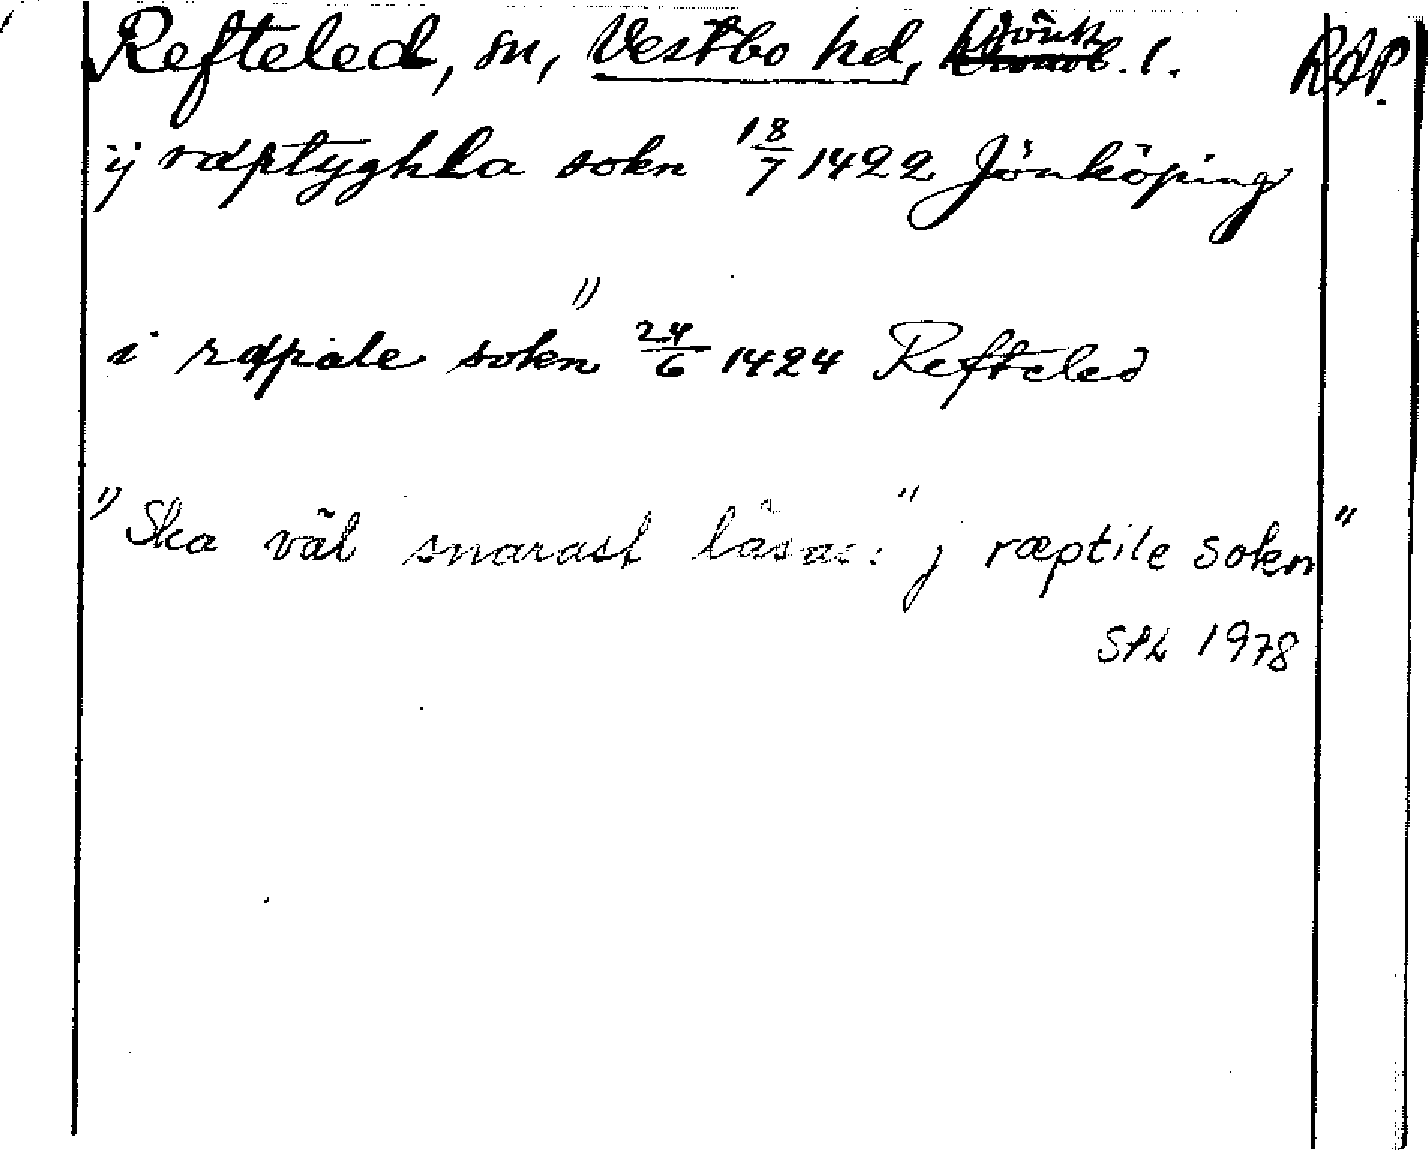 Refteled, sn, Vestbo hd, Jönk. l. RAP.
ij ræptyghla sokn 18/7 1422 Jönköping
"
i ræpiale sokn 24/6 1424 Refteled
"Ska väl snarast läsas: "j ræptile sokn"
SPL 1978